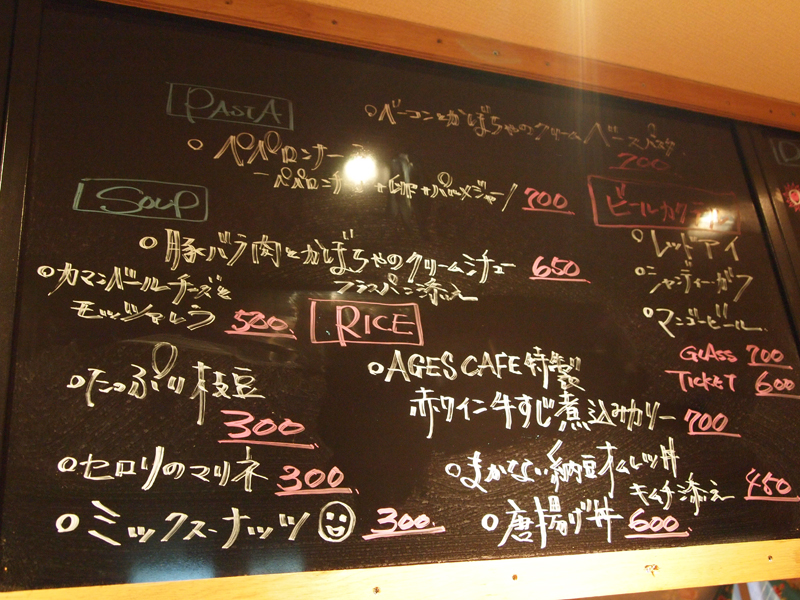 PASTA
○ベーコンとかぼちゃのクリームベースパスタ
700
○ペペロンチーノ
700
SOUP
○豚バラ肉とかぼちゃのクリームシチュー 650
フランスパン添え
○カマンベールチーズと
モッツァレラ 500
○たっぷり枝豆
300
○セロリのマリネ 300
○ミックスナッツ 300
RICE
○AGES CAFE特製
赤ワイン牛すじ煮込みカリー 700
○まかない納豆オムレツ丼
キムチ添え 450
○唐揚げ丼 600
ビールカクテル
○レッドアイ
○シャンディーガフ
○マンゴービール
GLASS 700
TICKET 600